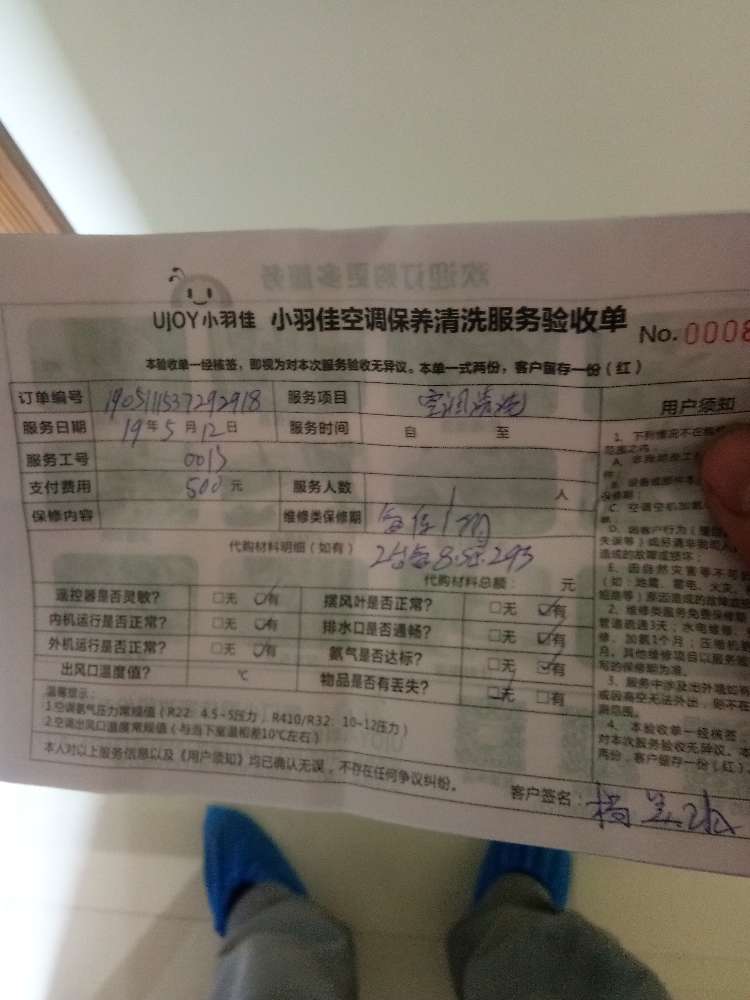 欢迎订购更多服务
UJOY小羽佳 小羽佳空调保养清洗服务验收单 No.0008
本验收单一经核签，即视为对本次服务验收无异议。本单一式两份，客户留存一份（红）
订单编号 190511537292918 服务项目 空调清洗
服务日期 19年5月12日 服务时间 自 至
服务工号 0015
支付费用 500元 服务人数 人
保修内容 维修类保修期
代购材料明细（如有）
代购材料总额： 元
遥控器是否灵敏？ □无 ☑有 摆风叶是否正常？ □无 ☑有
内机运行是否正常？ □无 ☑有 排水口是否通畅？ □无 ☑有
外机运行是否正常？ □无 ☑有 氨气是否达标？ □无 ☑有
出风口温度值？ ℃ 物品是否有丢失？ ☑无 □有
温馨提示：
1.空调氨气压力常规值（R22：4.5~5压力，R410/R32：10~12压力）
2.空调出风口温度常规值（与当下室温相差10℃左右）
本人对以上服务信息以及《用户须知》均已确认无误，不存在任何争议纠纷。
客户签名：
用户须知
1、下列情况不在
范围之内
C、空调空机加氨
D、因客户行为
造成的故障或损坏；
E、因自然灾害等不可
（如：地震、雷电、火灾、
2、维修类服务免费保修期
管道疏通3天；水电维修
修、加氨1个月；压缩机
月，其他维修项目以服务
写的保修期为准。
3、服务中涉及出外墙如
或因高空无法外出，则不在
4、本验收单一经核签，
对本次服务验收无异议。本
两份，客户留存一份（红）